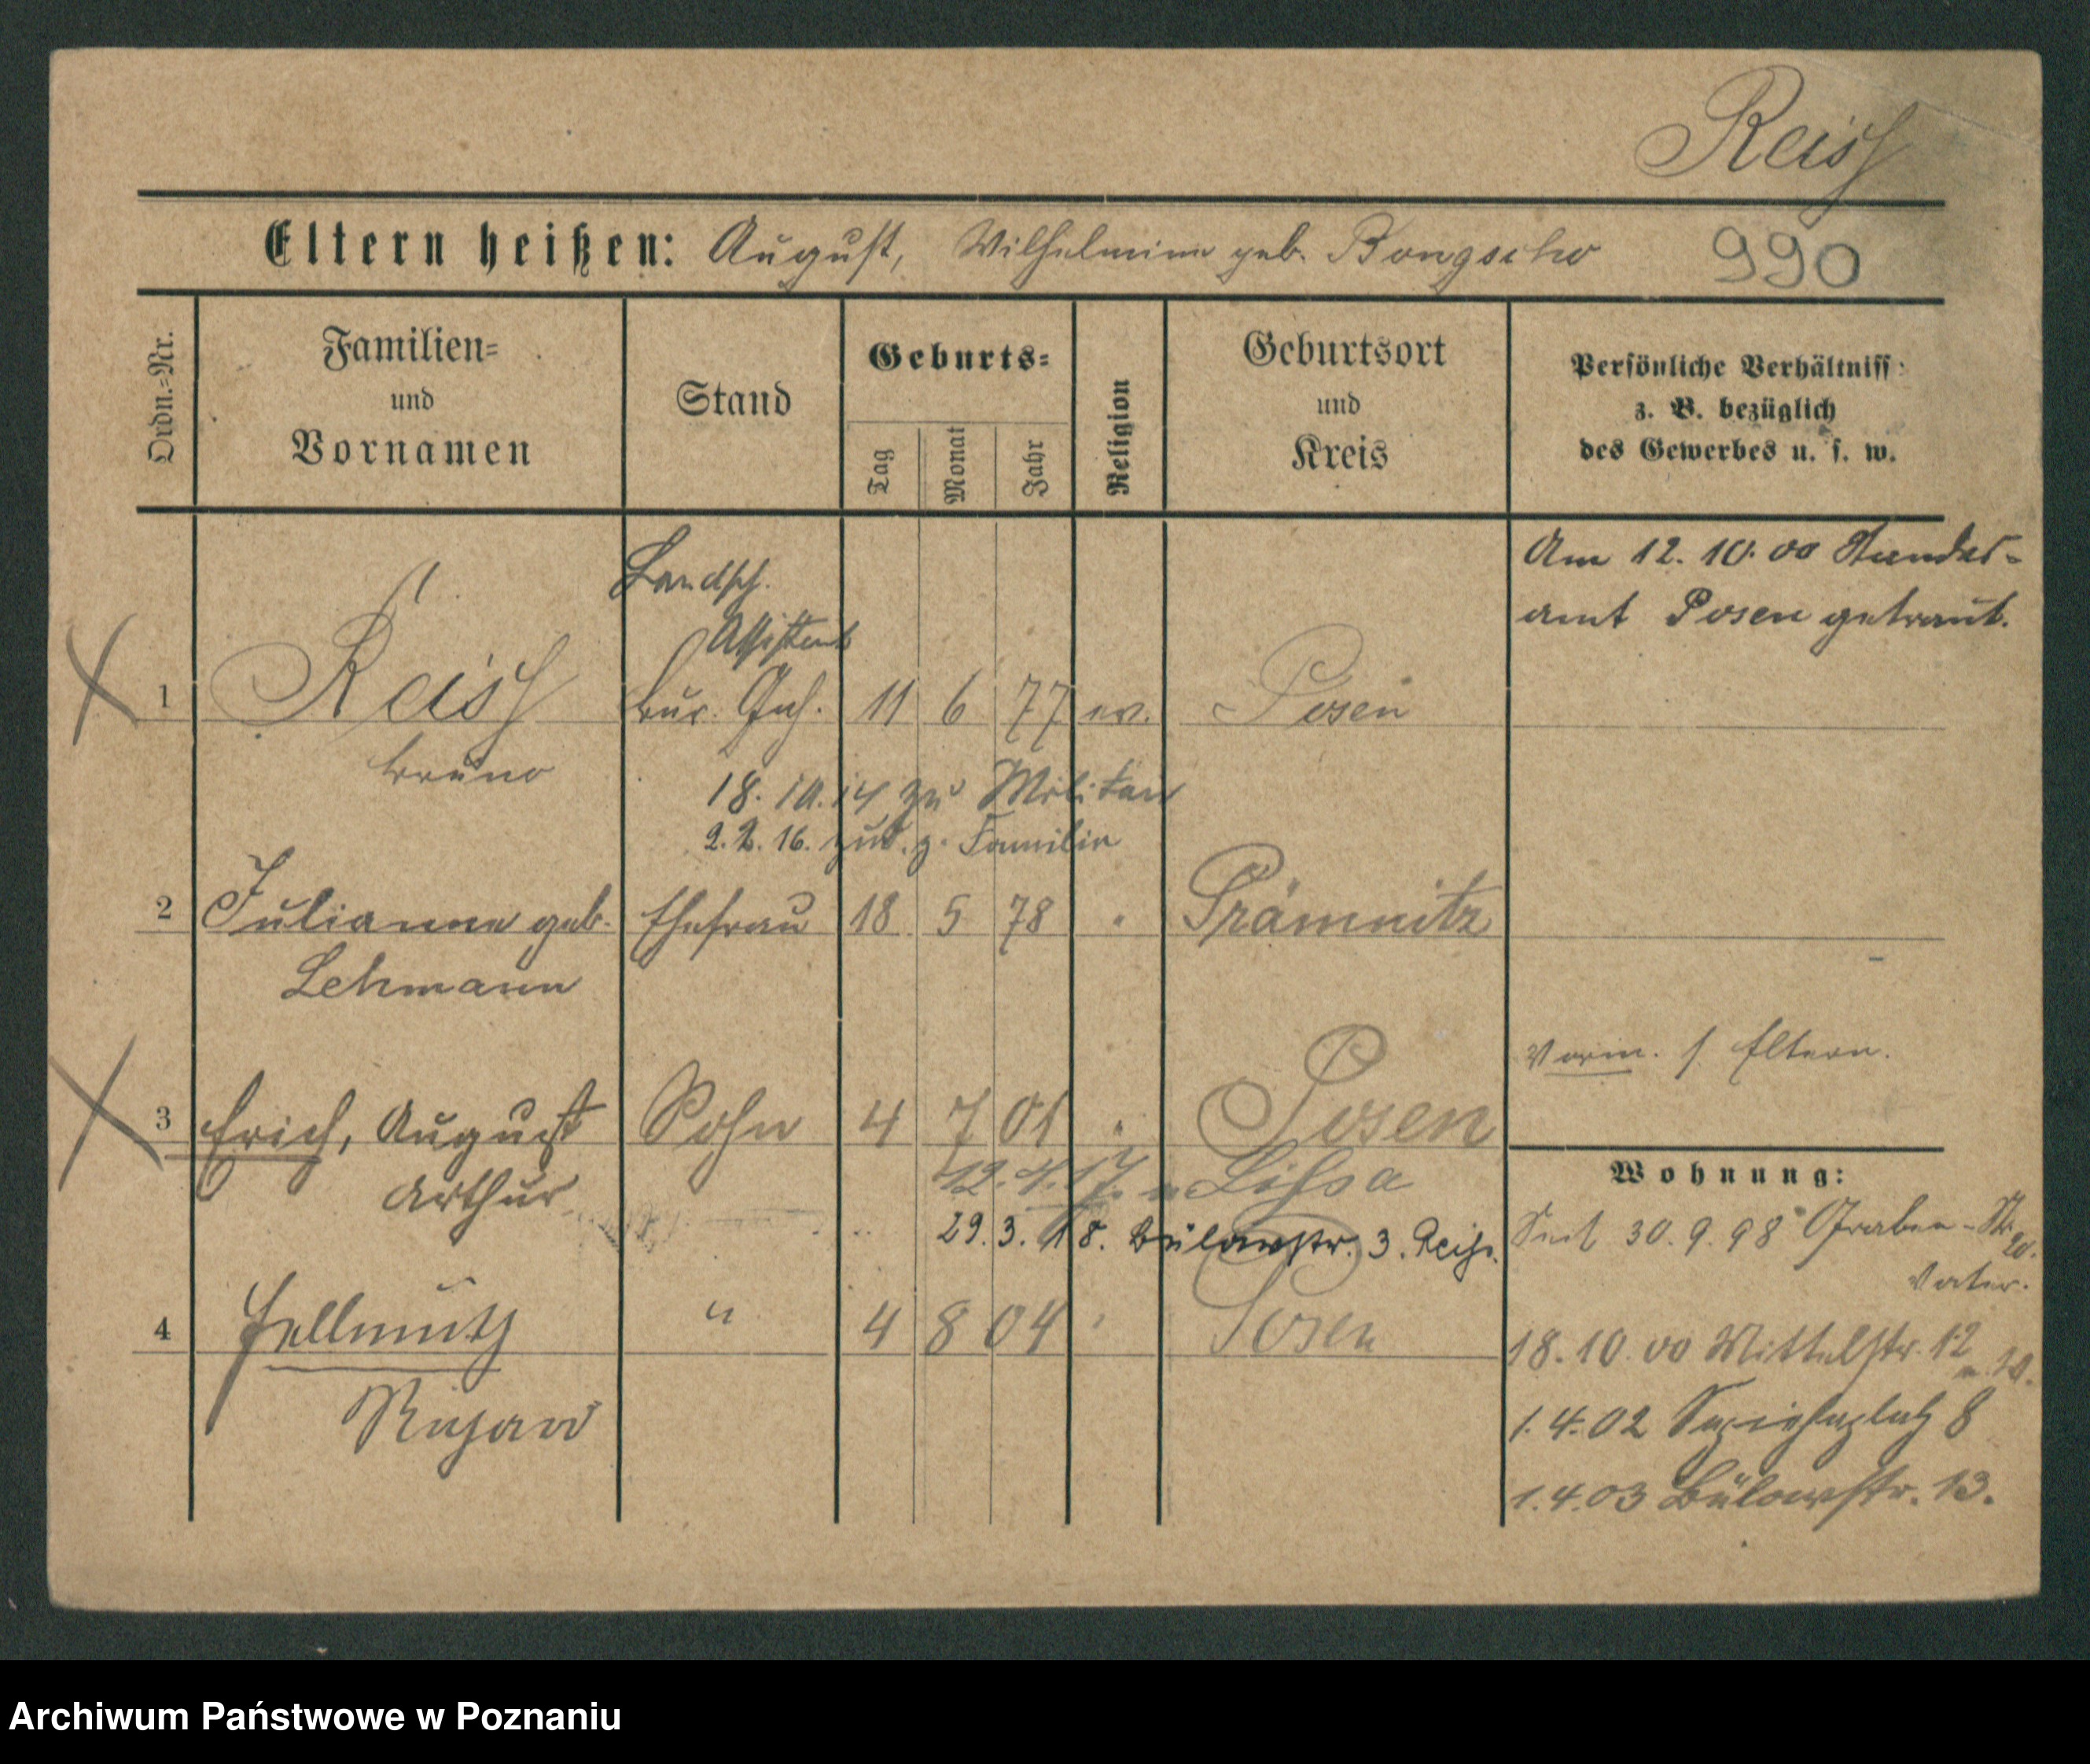 Reiss
Eltern heißen: August, Wilhelmine geb. Bongscho 990
Ordn.=Nr.
Familien=
und
Vornamen
Stand
Geburts=
Tag
Monat
Jahr
Religion
Geburtsort
und
Kreis
Persönliche Verhältniss
z. B. bezüglich
des Gewerbes u. s. w.
Am 12. 10. 00 Standes-
amt Posen getraut.
Landsch.
Assistent
1 Reiss Bur. Geh. 11 6 77 ev. Posen
Bruno
18. 10. 14 zu Militär
2. 2. 16. zur. z. Familie
2 Julianne geb. Ehefrau 18 5 78 " Prämnitz
Lehmann
Vorm. s. Eltern.
3 Erich, August Sohn 4 7 01 " Posen
Arthur
12. 4. 17. n Lissa
29. 3. 18. Bülowstr. 3. Reiss.
Wohnung:
Seit 30. 9. 98 Graben-Str.
Vater.
4 Hellmuth " 4 8 04 " Posen
18. 10. 00 Mittelstr. 12
1. 4. 02 Sapiehaplatz 8
1. 4. 03 Bülowstr. 13.
Archiwum Państwowe w Poznaniu